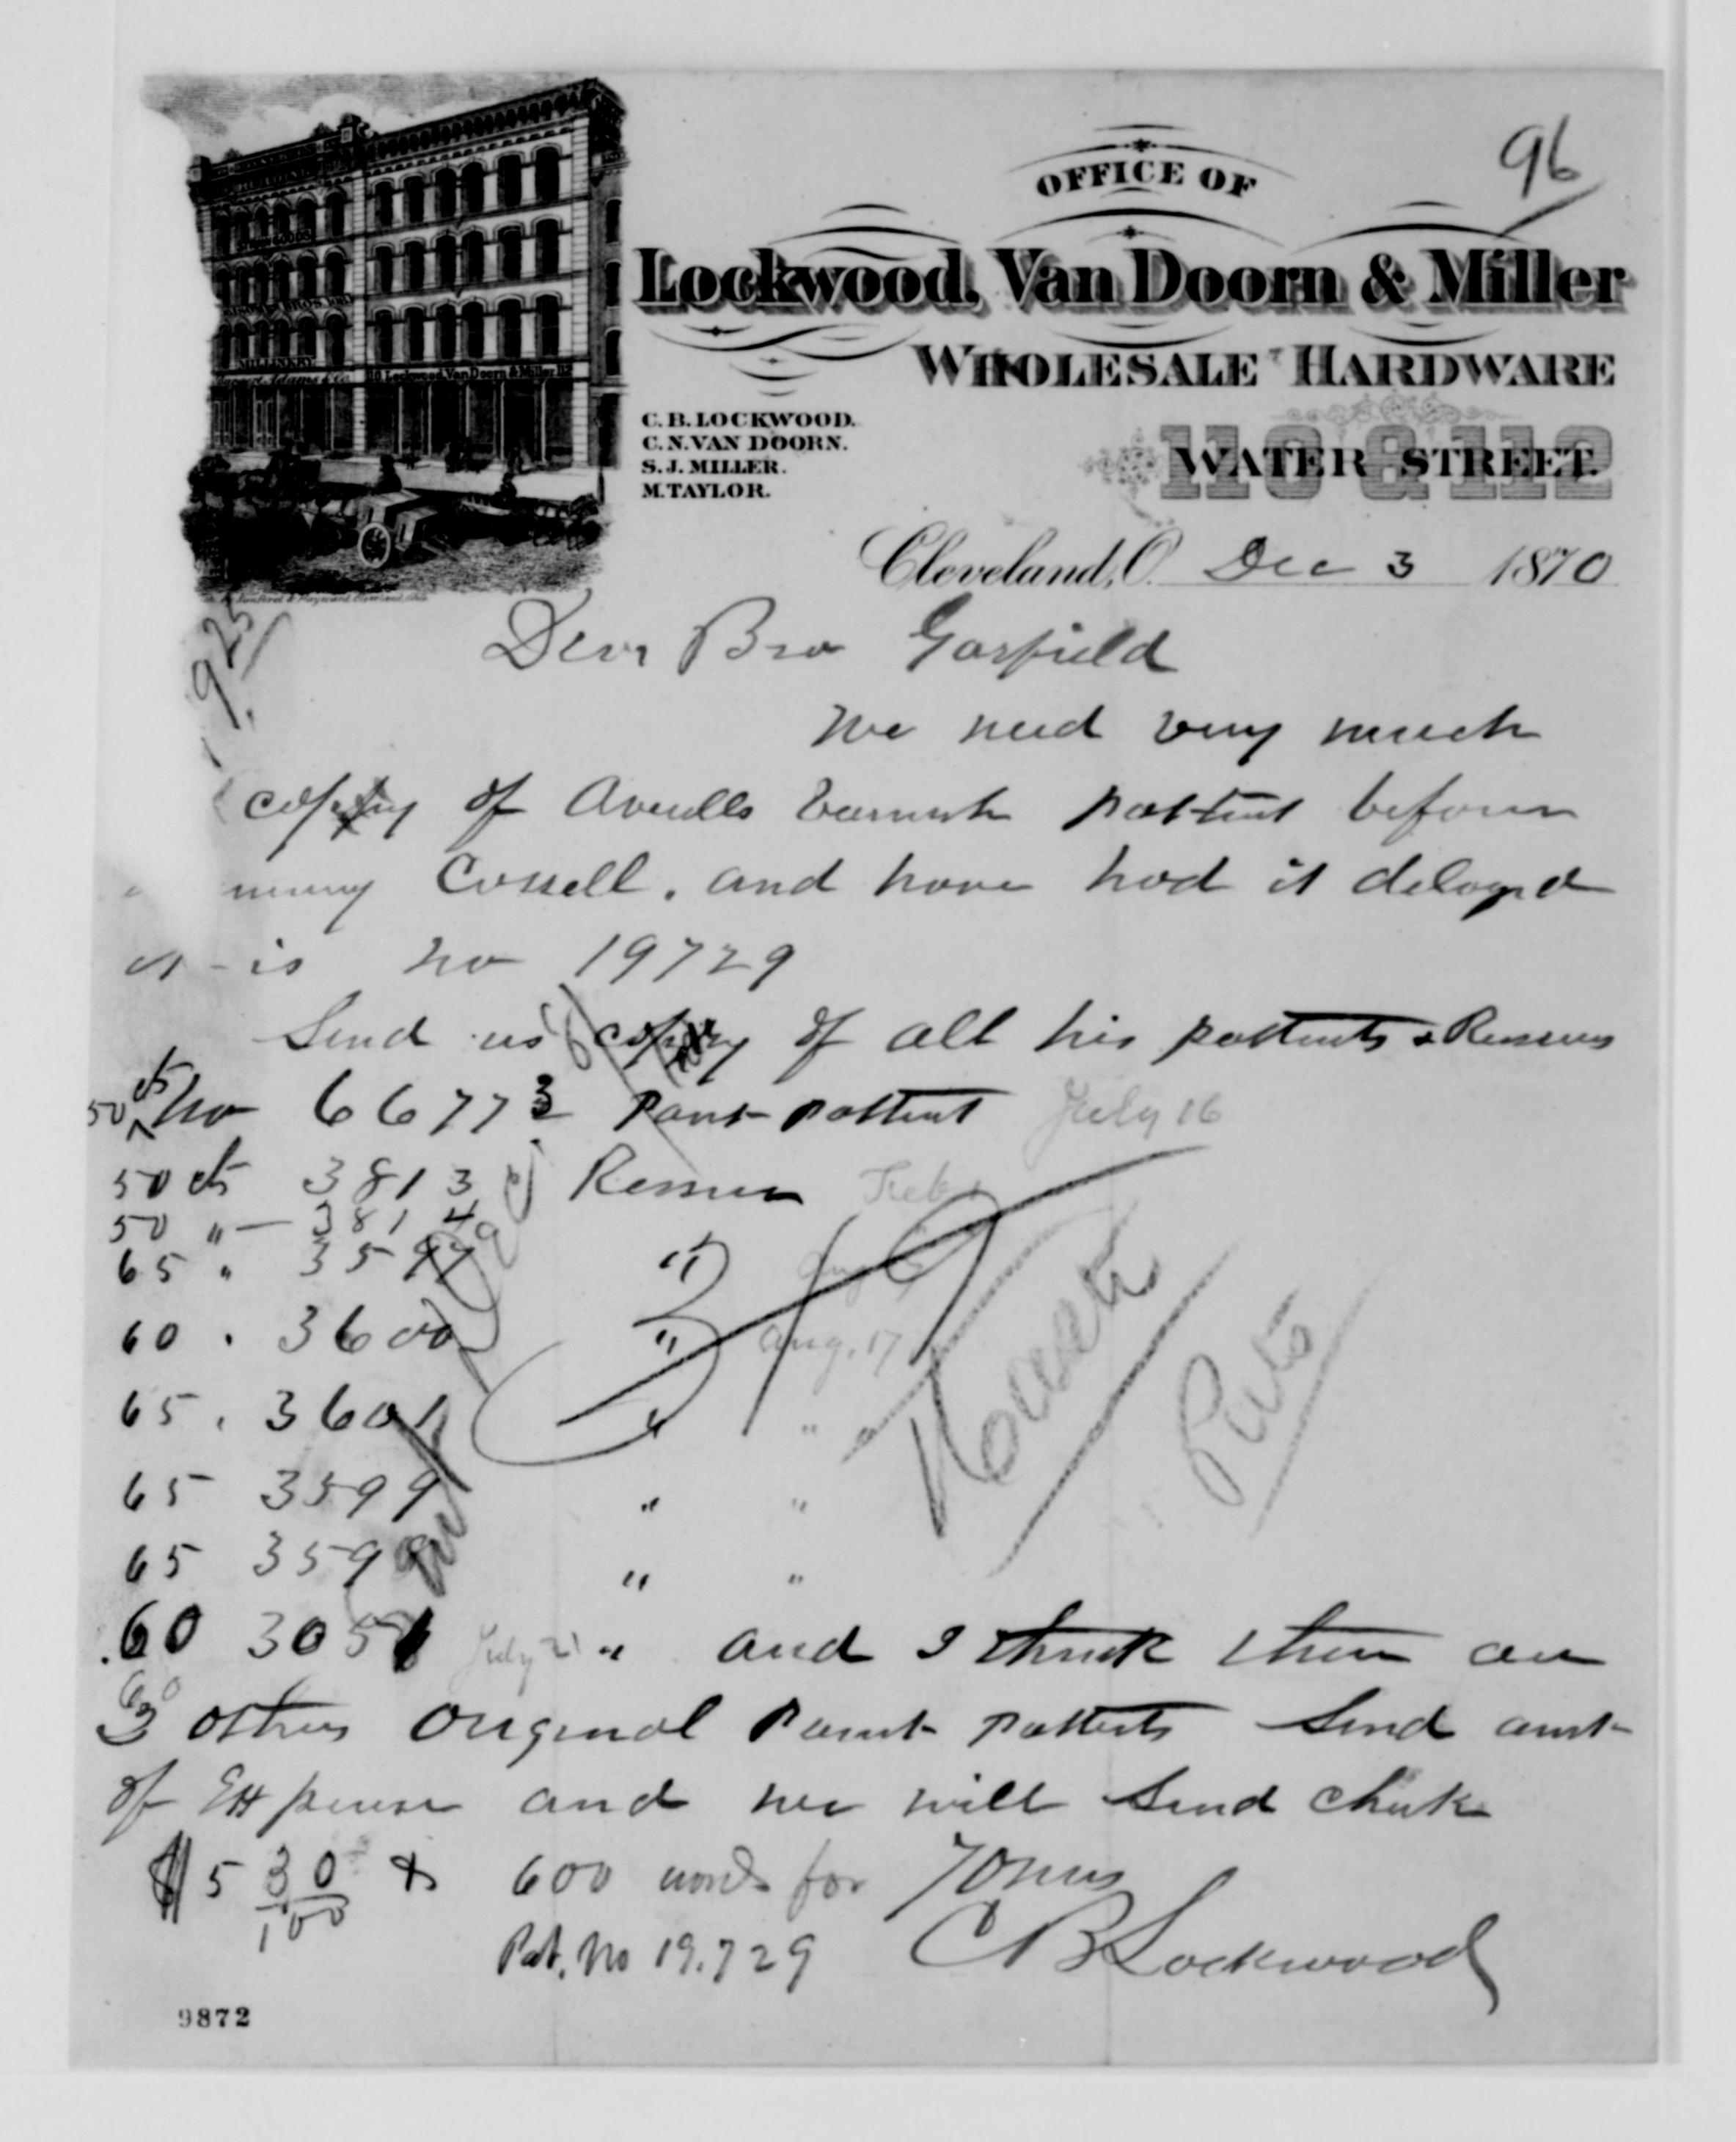 96
OFFICE OF
Lockwood, Van Doorn & Miller
WHOLESALE HARDWARE
110 & 112
WATER STREET.
C. B. LOCKWOOD.
C. N. VAN DOORN.
S. J. MILLER.
M. TAYLOR.
MILLINERY
Lockwood, Van Doorn & Miller 112
Cleveland, O. Dec 3 1870
925
Dear Bro Garfield
We need very much
copy of Averills varnish pattent before
Cossell. and have had it delayed
it is no 19729
Send us copy of all his pattents & Reissues
50 cts no 66773 Paint pattent July 16
50 cts 3813 Reissue Feb
50 " — 3814
65 " 3597 " Aug
60 . 3600 " Aug. 17
65 . 3601 " "
65 3599 " "
65 3598 " "
.60 3051 July " and I think there are
60
3 others Original Paint pattents Send amt
of Expense and we will send check
$5 30/100 & 600 words for Yours
Pat. No 19.729 C B Lockwood
9872